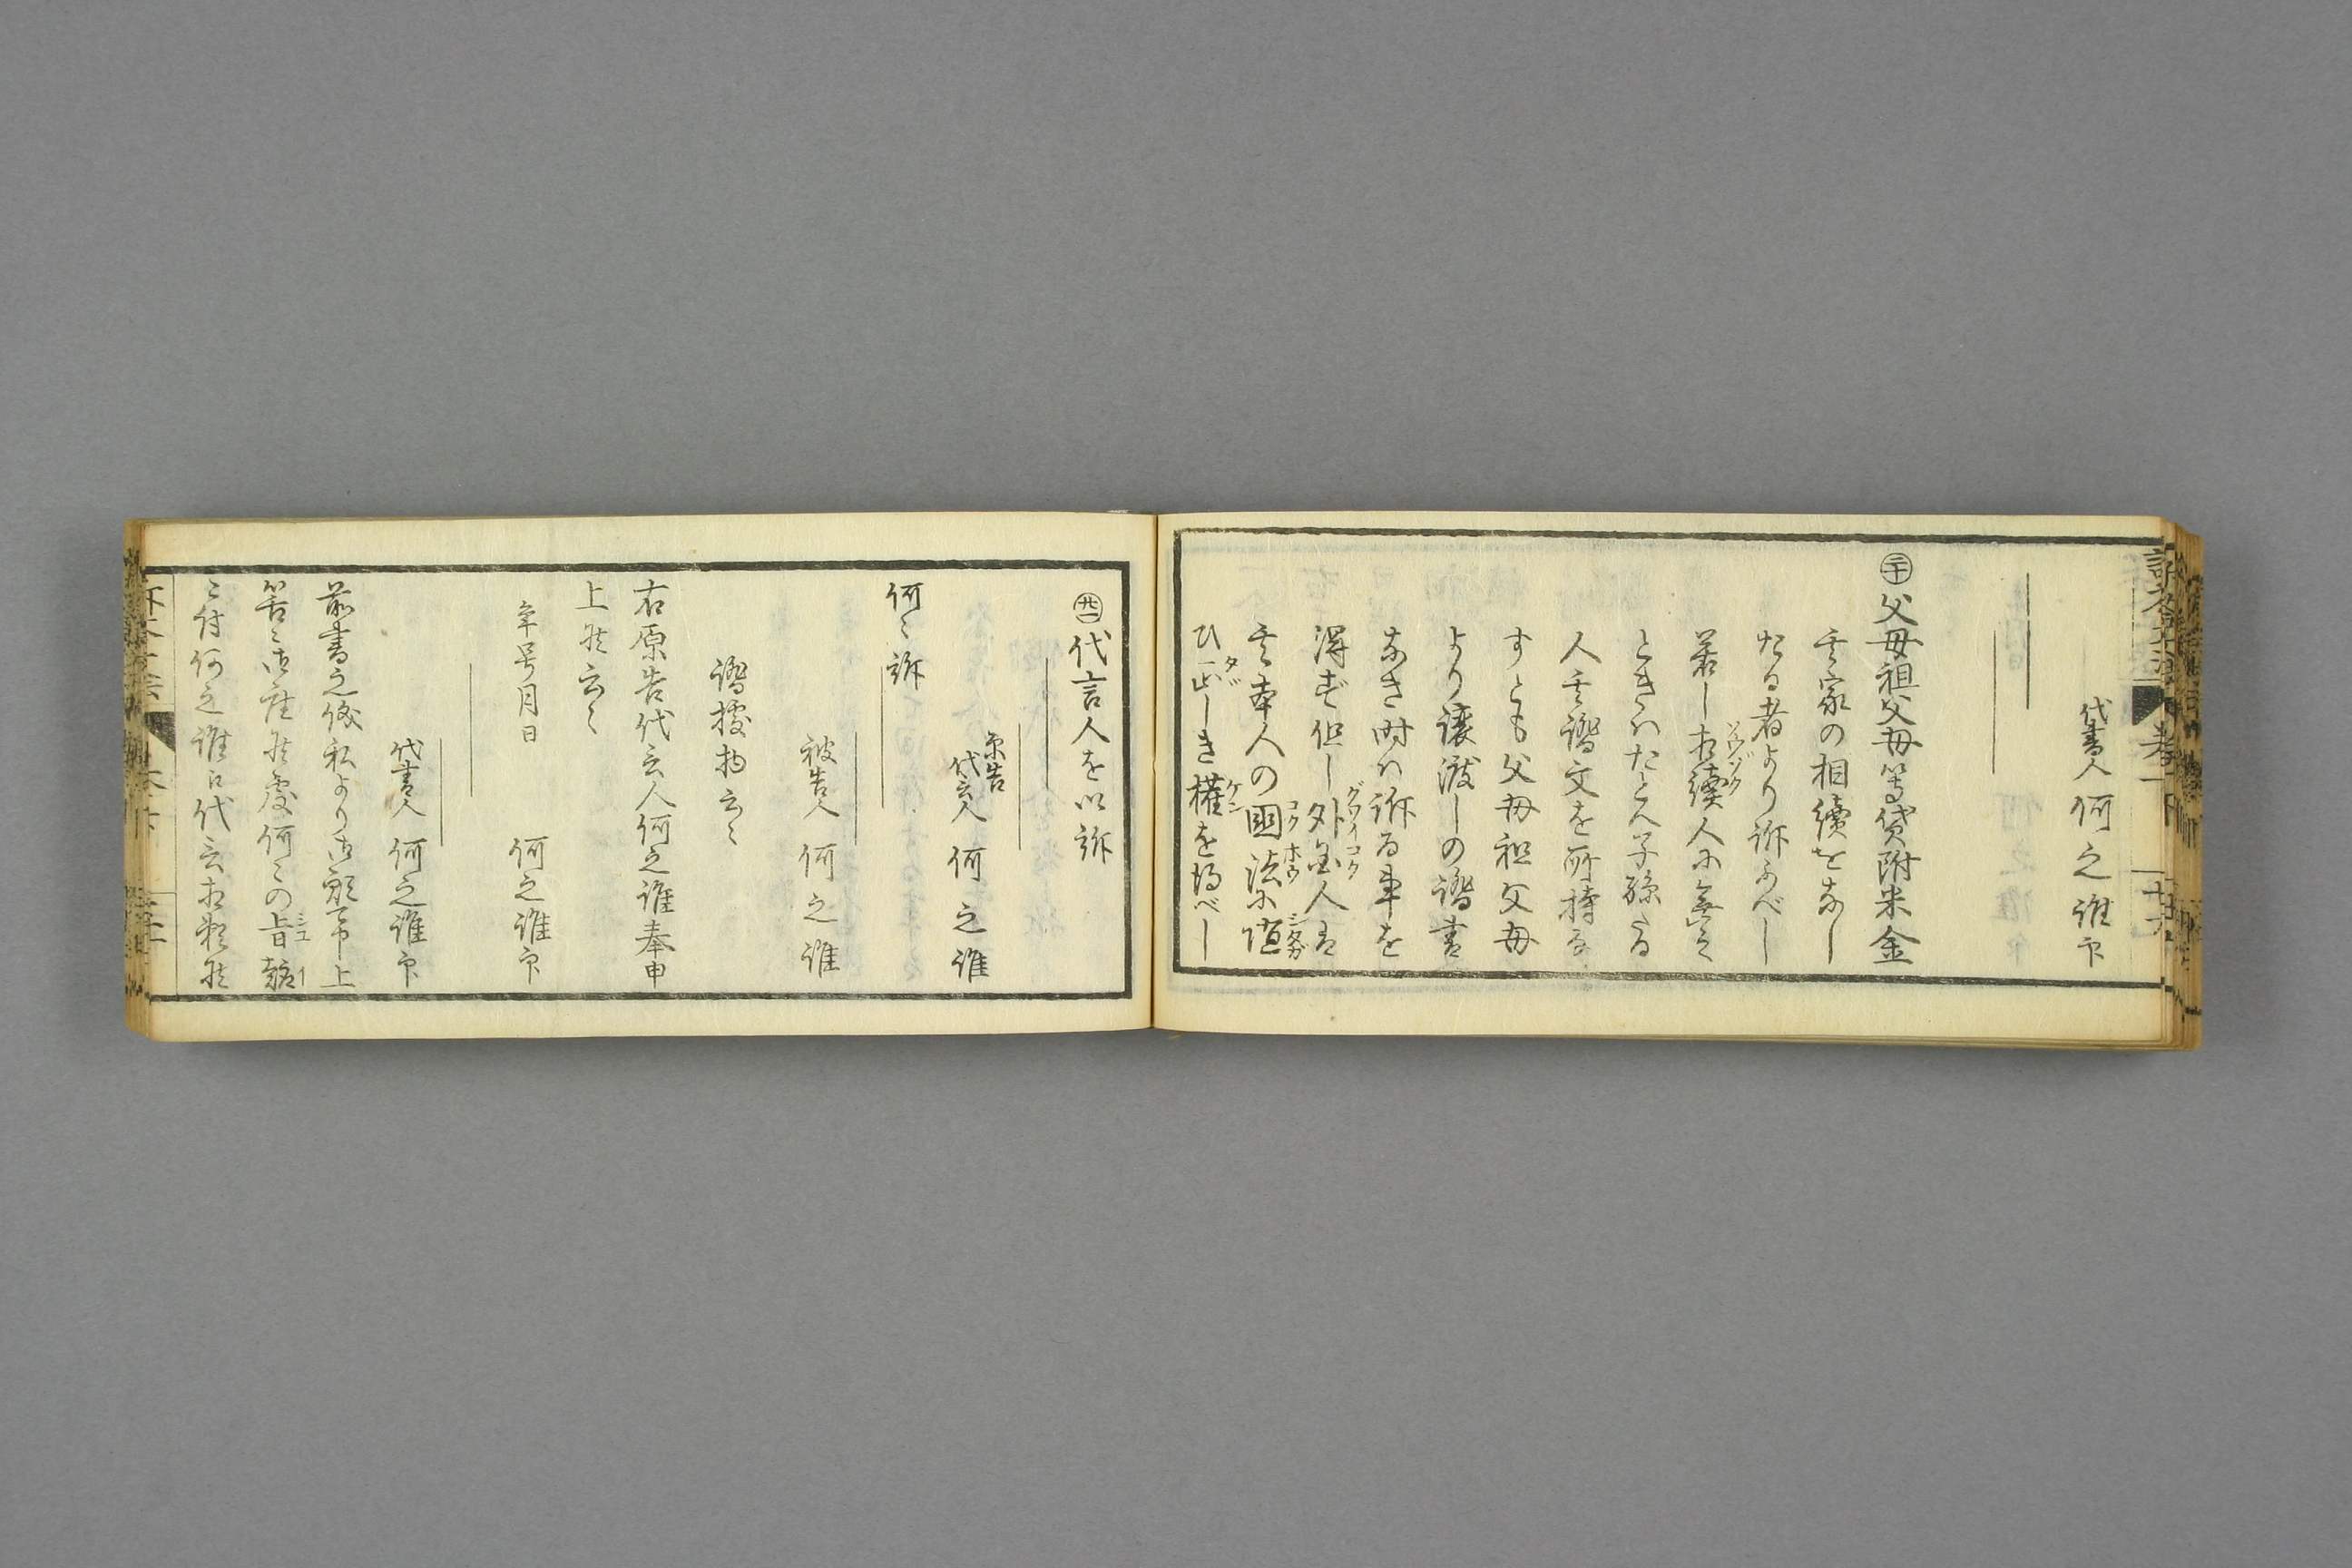 代書人 何之誰 印
㊁十 父母祖父母等貸附米金
其家の相續をなし
たる者より訴ふべし
若し相續人に無之
ときハたとへ子孫たる
人其證文を所持る
すとも父母祖父母
より譲渡しの證書
なき時ハ訴る事を
得ず但し外国人は
其本人の國法に随
ひ正しき權を得べし
㊂一 代言人を以訴
原告
代言人 何之誰
何〻訴
被告人 何之誰
證據物云〻
右原告代言人何之誰奉申
上候云〻
年号月日
何之誰 印
代書人 何之誰 印
前書之儀私より御願可申上
筈ニ御座候處何〻の旨趣
ニ付何之誰に代言相頼候